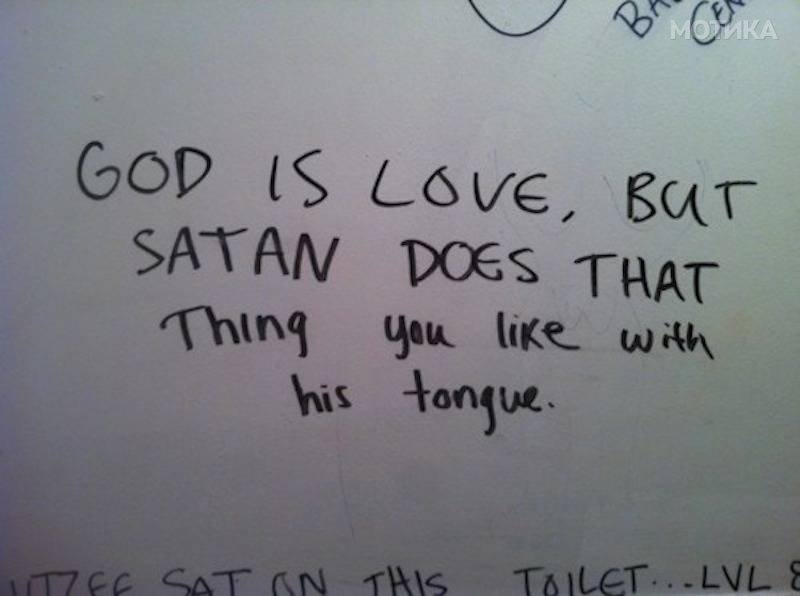 BA
CEN
МОТИКА
GOD IS LOVE, BUT
SATAN DOES THAT
Thing you like with
his tongue.
UTZEE SAT ON THIS TOILET...LVL 8